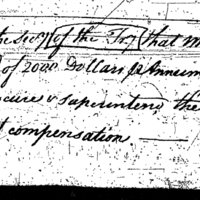 the Secy of the Try that M
of 2000 Dollars p Annum
cure & superintend the
t compensation